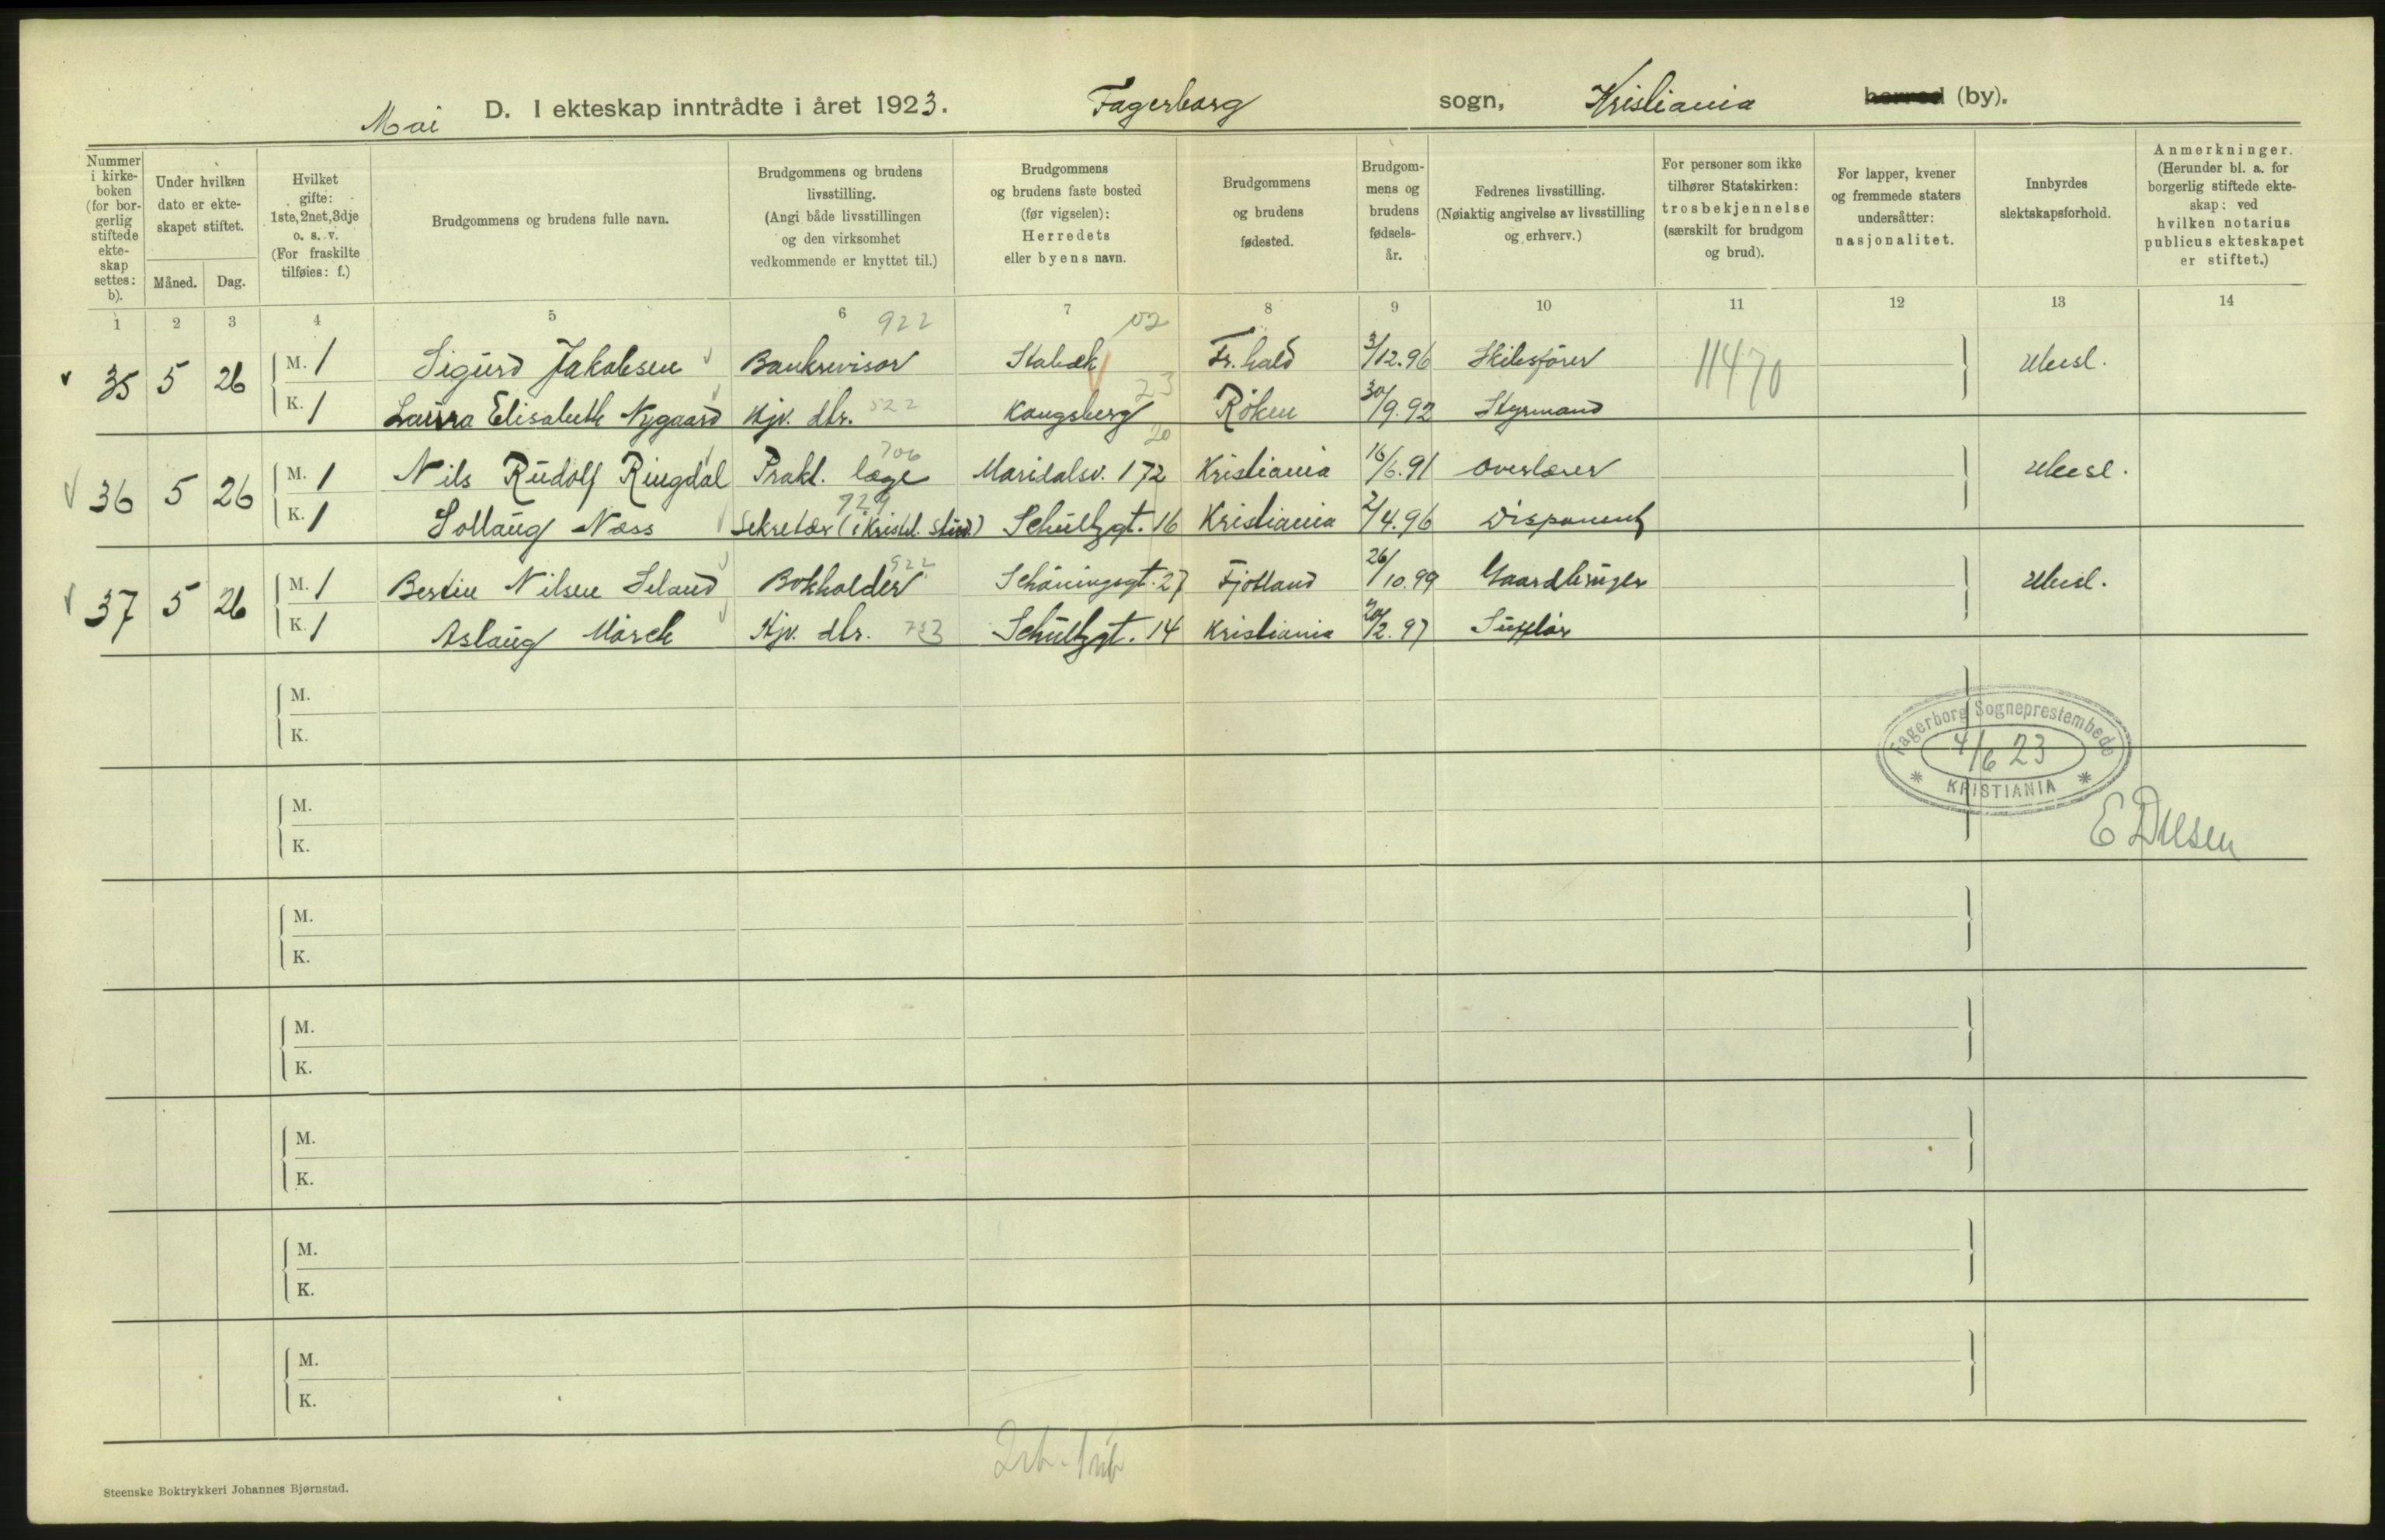 Mai D. I ekteskap inntrådte i året 1923. Fagerborg sogn, Kristiania herred (by).
Nummer i kirke- boken (for bor- gerlig stiftede ekte- skap settes: b).
Under hvilken dato er ekte- skapet stiftet.
Måned. Dag.
Hvilket gifte: 1ste, 2net, 3dje o. s. v. (For fraskilte tilføies: f.)
Brudgommens og brudens fulle navn.
Brudgommens og brudens livsstilling. (Angi både livsstillingen og den virksomhet vedkommende er knyttet til.)
Brudgommens og brudens faste bosted (før vigselen): Herredets eller byens navn.
Brudgommens og brudens fødested.
Brudgom- mens og brudens fødsels- år.
Fedrenes livsstilling. (Nøiaktig angivelse av livsstilling og erhverv.)
For personer som ikke tilhører Statskirken: trosbekjennelse (særskilt for brudgom og brud).
For lapper, kvener og fremmede staters undersåtter: nasjonalitet.
Innbyrdes slektskapsforhold.
Anmerkninger. (Herunder bl. a. for borgerlig stiftede ekte- skap: ved hvilken notarius publicus ekteskapet er stiftet.)
1 2 3 4 5 6 7 8 9 10 11 12 13 14
922 02
35 5 26 M. 1 Sigurd Jakobsen Bankrevisor Stabæk Fr. hald 3/12.96 Skibsfører 11470 Ubesl.
K. 1 Laura Elisabeth Nygaard Hjv. dtr. 522 Kongsberg 23 Røken 30/9.92 Styrmand
706 20
36 5 26 M. 1 Nils Rudolf Ringdal Prakt. læge Maridalsv. 172 Kristiania 16/6.91 Overlærer Ubesl.
K. 1 Sollaug Næss Sekretær (i Kristel. Stud.) Schultzgt. 16 Kristiania 2/4.96 Disponent
922
37 5 26 M. 1 Bertin Nilsen Seland Bokholder Schöningsgt. 27 Fjotland 26/10.99 Gaardbruger Ubesl.
K. 1 Aslaug Mørch Hjv. dtr. 733 Schultzgt. 14 Kristiania 20/2.97 Sufflør
M.
K.
Fagerborg Sogneprestembede
4/6 23
KRISTIANIA
M.
K.
M.
K.
M.
K.
M.
K.
M.
K.
M.
K.
Steenske Boktrykkeri Johannes Bjørnstad.